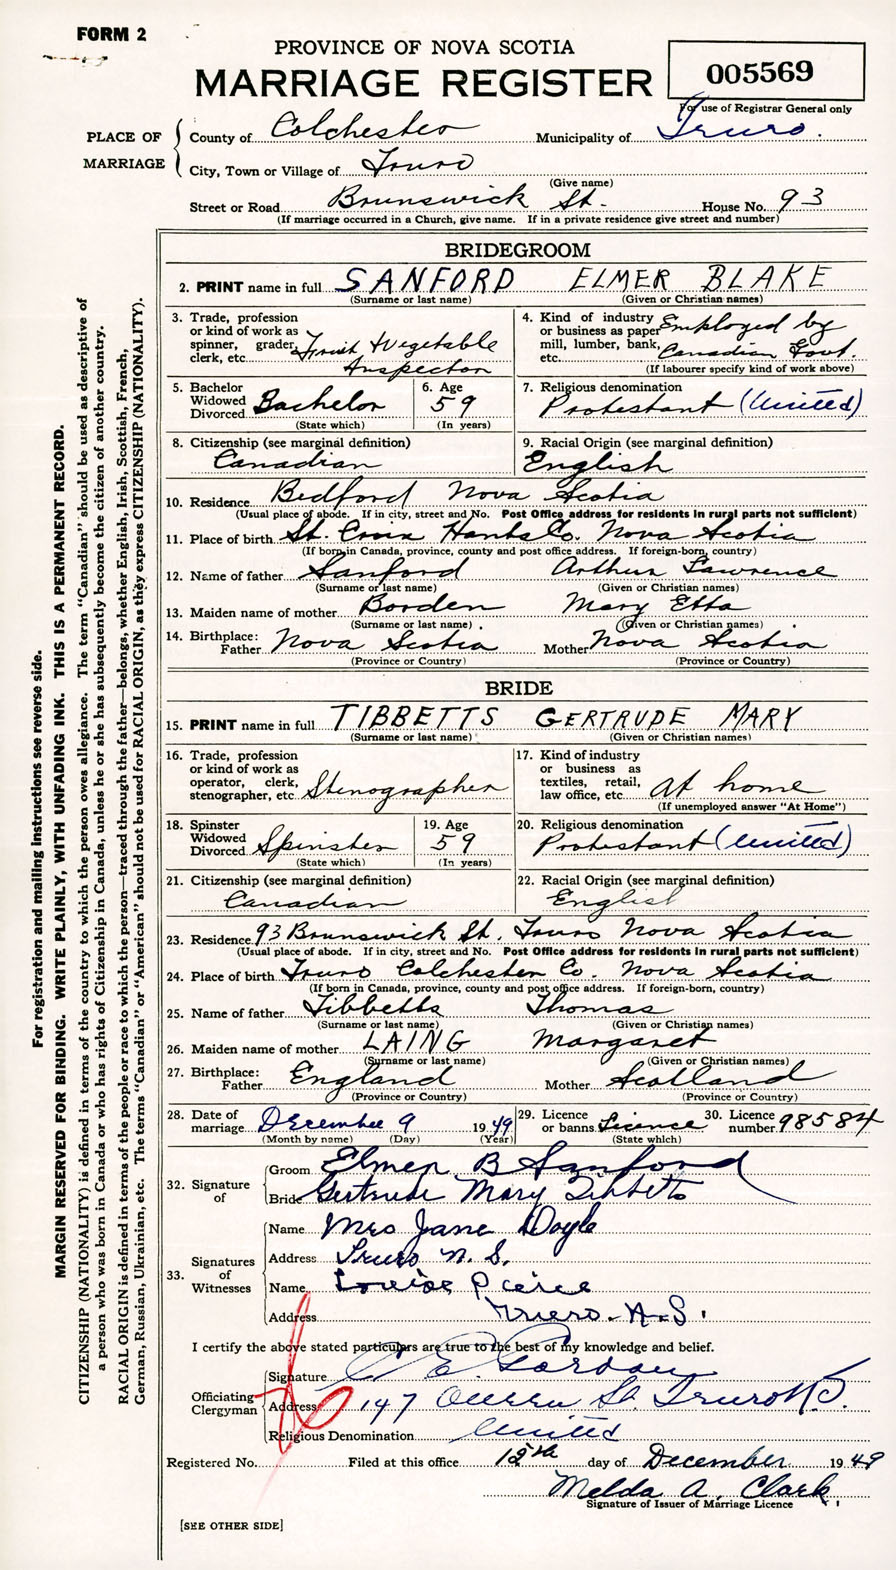 FORM 2
PROVINCE OF NOVA SCOTIA
MARRIAGE REGISTER
005569
For use of Registrar General only
PLACE OF MARRIAGE
County of Colchester Municipality of Truro.
City, Town or Village of Truro
(Give name)
Street or Road Brunswick St. House No. 93
(If marriage occurred in a Church, give name. If in a private residence give street and number)
BRIDEGROOM
2. PRINT name in full SANFORD ELMER BLAKE
(Surname or last name) (Given or Christian names)
3. Trade, profession or kind of work as spinner, grader, clerk, etc. Fruit & Vegetable Inspector
4. Kind of industry or business as paper mill, lumber, bank, etc. Employed by Canadian Govt.
(If labourer specify kind of work above)
5. Bachelor Widowed Divorced Bachelor
(State which)
6. Age 59
(In years)
7. Religious denomination
Protestant (United)
8. Citizenship (see marginal definition)
Canadian
9. Racial Origin (see marginal definition)
English
10. Residence Bedford Nova Scotia
(Usual place of abode. If in city, street and No. Post Office address for residents in rural parts not sufficient)
11. Place of birth St. Croix Hants Co. Nova Scotia
(If born in Canada, province, county and post office address. If foreign-born, country)
12. Name of father Sanford Arthur Lawrence
(Surname or last name) (Given or Christian names)
13. Maiden name of mother Borden Mary Etta
(Surname or last name) (Given or Christian names)
14. Birthplace: Father Nova Scotia Mother Nova Scotia
(Province or Country) (Province or Country)
BRIDE
15. PRINT name in full TIBBETTS GERTRUDE MARY
(Surname or last name) (Given or Christian names)
16. Trade, profession or kind of work as operator, clerk, stenographer, etc Stenographer
17. Kind of industry or business as textiles, retail, law office, etc. At home
(If unemployed answer "At Home")
18. Spinster Widowed Divorced Spinster
(State which)
19. Age 59
(In years)
20. Religious denomination
Protestant (United)
21. Citizenship (see marginal definition)
Canadian
22. Racial Origin (see marginal definition)
English
23. Residence 93 Brunswick St. Truro Nova Scotia
(Usual place of abode. If in city, street and No. Post Office address for residents in rural parts not sufficient)
24. Place of birth Truro Colchester Co. Nova Scotia
(If born in Canada, province, county and post office address. If foreign-born, country)
25. Name of father Tibbetts Thomas
(Surname or last name) (Given or Christian names)
26. Maiden name of mother LAING Margaret
(Surname or last name) (Given or Christian names)
27. Birthplace: Father England Mother Scotland
(Province or Country) (Province or Country)
28. Date of marriage December 9 1949
(Month by name) (Day) (Year)
29. Licence or banns Licence
(State which)
30. Licence number 98584
32. Signature of
Groom Elmer B Sanford
Bride Gertrude Mary Tibbetts
33. Signatures of Witnesses
Name Mrs Jane Doyle
Address Truro N. S.
Name Louise Pierce
Address Truro - N.S.
I certify the above stated particulars are true to the best of my knowledge and belief.
Officiating Clergyman
Signature C E Gordon
Address 147 Queen St. Truro N.S.
Religious Denomination United
Registered No. Filed at this office 12th day of December 1949
Melda A. Clark
Signature of Issuer of Marriage Licence
[SEE OTHER SIDE]
For registration and mailing instructions see reverse side.
MARGIN RESERVED FOR BINDING. WRITE PLAINLY, WITH UNFADING INK. THIS IS A PERMANENT RECORD.
CITIZENSHIP (NATIONALITY) is defined in terms of the country to which the person owes allegiance. The term "Canadian" should be used as descriptive of
a person who was born in Canada or who has rights of Citizenship in Canada, unless he or she has subsequently become the citizen of another country.
RACIAL ORIGIN is defined in terms of the people or race to which the person—traced through the father—belongs, whether English, Irish, Scottish, French,
German, Russian, Ukrainian, etc. The terms "Canadian" or "American" should not be used for RACIAL ORIGIN, as they express CITIZENSHIP (NATIONALITY).